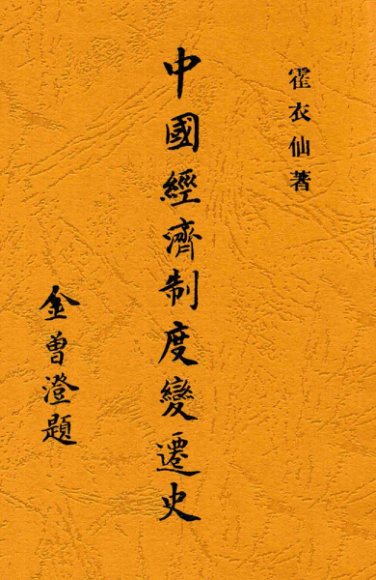 霍衣仙著
中國經濟制度變遷史
金曾澄題